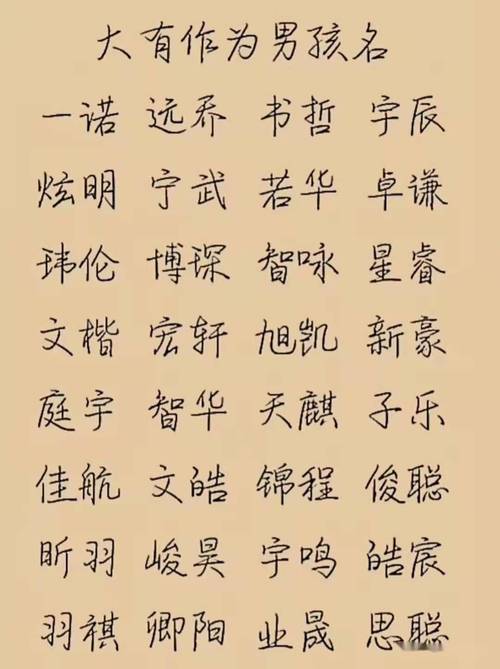 大有作为男孩名
一诺 远乔 书哲 宇辰
炫明 宁武 若华 卓谦
玮伦 博琛 智咏 星睿
文楷 宏轩 旭凯 新豪
庭宇 智华 天麒 子乐
佳航 文皓 锦程 俊聪
昕羽 峻昊 宇鸣 皓宸
羽祺 卿阳 业晟 思聪